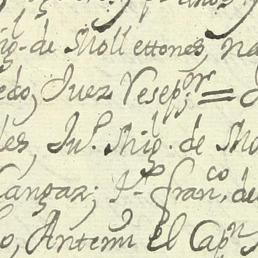 ig.l de Mollettones, na
edo, Juez Vesep.or =
les, Ju.o Mig.l de Mo
Cangaz; P.o fran.co de
o, Antemi el Cap.n